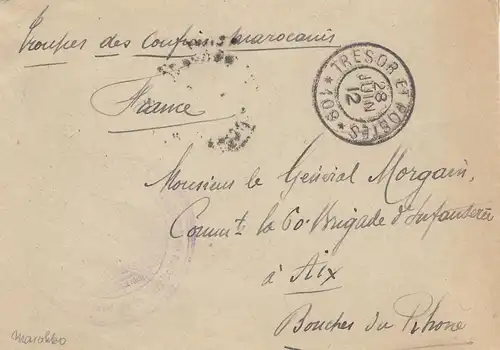 Troupes des Confins marocains
France
TRESOR ET POSTES
28
JUIN
12
* 801 *
Monsieur le Général Morgain,
Commt la 60e Brigade d'Infanterie
à Aix
Bouches du Rhône
Marokko